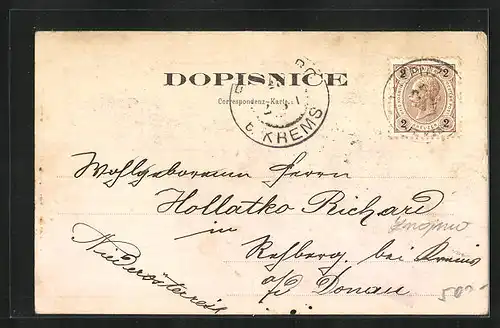 DOPISNICE
Correspondenz-Karte.
b. KREMS
2 2
2 2
Wohlgeborenen Herrn
Hollatko Richard
in
Rehberg bei Krems
a/d Donau
Niederösterreich
500-